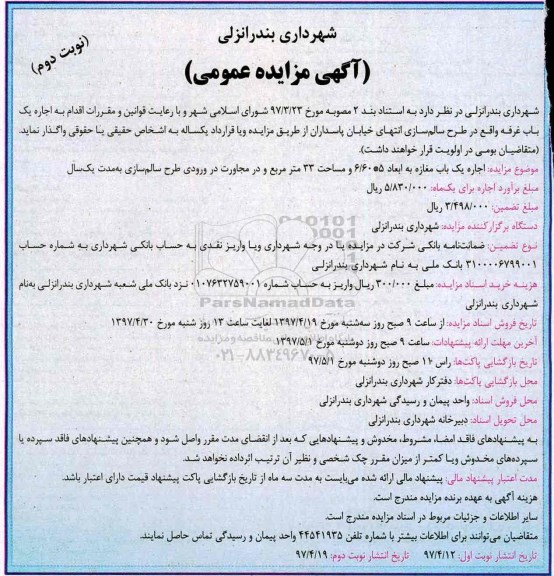 شهرداری بندرانزلی
(نوبت دوم)
(آگهی مزایده عمومی)
شهرداری بندرانزلی در نظر دارد به استناد بند ۲ مصوبه مورخ ۹۷/۳/۲۳ شورای اسلامی شهر و با رعایت قوانین و مقررات اقدام به اجاره یک
باب غرفه واقع در طرح سالم‌سازی انتهای خیابان پاسداران از طریق مزایده ویا قرارداد یکساله به اشخاص حقیقی یا حقوقی واگذار نماید.
(متقاضیان بومی در اولویت قرار خواهند داشت).
موضوع مزایده: اجاره یک باب مغازه به ابعاد ۵*۶/۶۰ و مساحت ۳۳ متر مربع و در مجاورت در ورودی طرح سالم‌سازی به‌مدت یک‌سال
مبلغ برآورد اجاره برای یک‌ماه: ۵/۸۳۰/۰۰۰ ریال
مبلغ تضمین: ۳/۴۹۸/۰۰۰ ریال
دستگاه برگزارکننده مزایده: شهرداری بندرانزلی
نوع تضمین: ضمانت‌نامه بانکی شرکت در مزایده یا در وجه شهرداری ویا واریز نقدی به حساب بانکی شهرداری به شماره حساب
۳۱۰۰۰۰۶۷۹۹۰۰۱ بانک ملی به نام شهرداری بندرانزلی
هزینه خرید اسناد مزایده: مبلغ ۳۰۰/۰۰۰ ریال واریز به حساب شماره ۰۱۰۷۶۳۲۷۵۹۰۰۱ نزد بانک ملی شعبه شهرداری بندرانزلی به‌نام
شهرداری بندرانزلی
ParsNamadData
تاریخ فروش اسناد مزایده: از ساعت ۹ صبح روز سه‌شنبه مورخ ۱۳۹۷/۴/۱۹ لغایت ساعت ۱۳ روز شنبه مورخ ۱۳۹۷/۴/۳۰
آخرین مهلت ارائه پیشنهادات: ساعت ۹ صبح روز دوشنبه مورخ ۱۳۹۷/۵/۱
تاریخ بازگشایی پاکت‌ها: راس ۱۱ صبح روز دوشنبه مورخ ۹۷/۵/۱
محل بازگشایی پاکت‌ها: دفترکار شهرداری بندرانزلی
محل فروش اسناد: واحد پیمان و رسیدگی شهرداری بندرانزلی
محل تحویل اسناد: دبیرخانه شهرداری بندرانزلی
به پیشنهادهای فاقد امضا، مشروط، مخدوش و پیشنهادهایی که بعد از انقضای مدت مقرر واصل شود و همچنین پیشنهادهای فاقد سپرده یا
سپرده‌های مخدوش ویا کمتر از میزان مقرر چک شخصی و نظیر آن ترتیب اثرداده نخواهد شد.
مدت اعتبار پیشنهاد مالی: پیشنهاد مالی ارائه شده می‌بایست به مدت سه ماه از تاریخ بازگشایی پاکت پیشنهاد قیمت دارای اعتبار باشد.
هزینه آگهی به عهده برنده مزایده مندرج است.
سایر اطلاعات و جزئیات مربوط در اسناد مزایده مندرج است.
متقاضیان می‌توانند برای اطلاعات بیشتر با شماره تلفن ۴۴۵۴۱۹۳۵ واحد پیمان و رسیدگی تماس حاصل نمایند.
تاریخ انتشار نوبت اول: ۹۷/۴/۱۲ تاریخ انتشار نوبت دوم: ۹۷/۴/۱۹